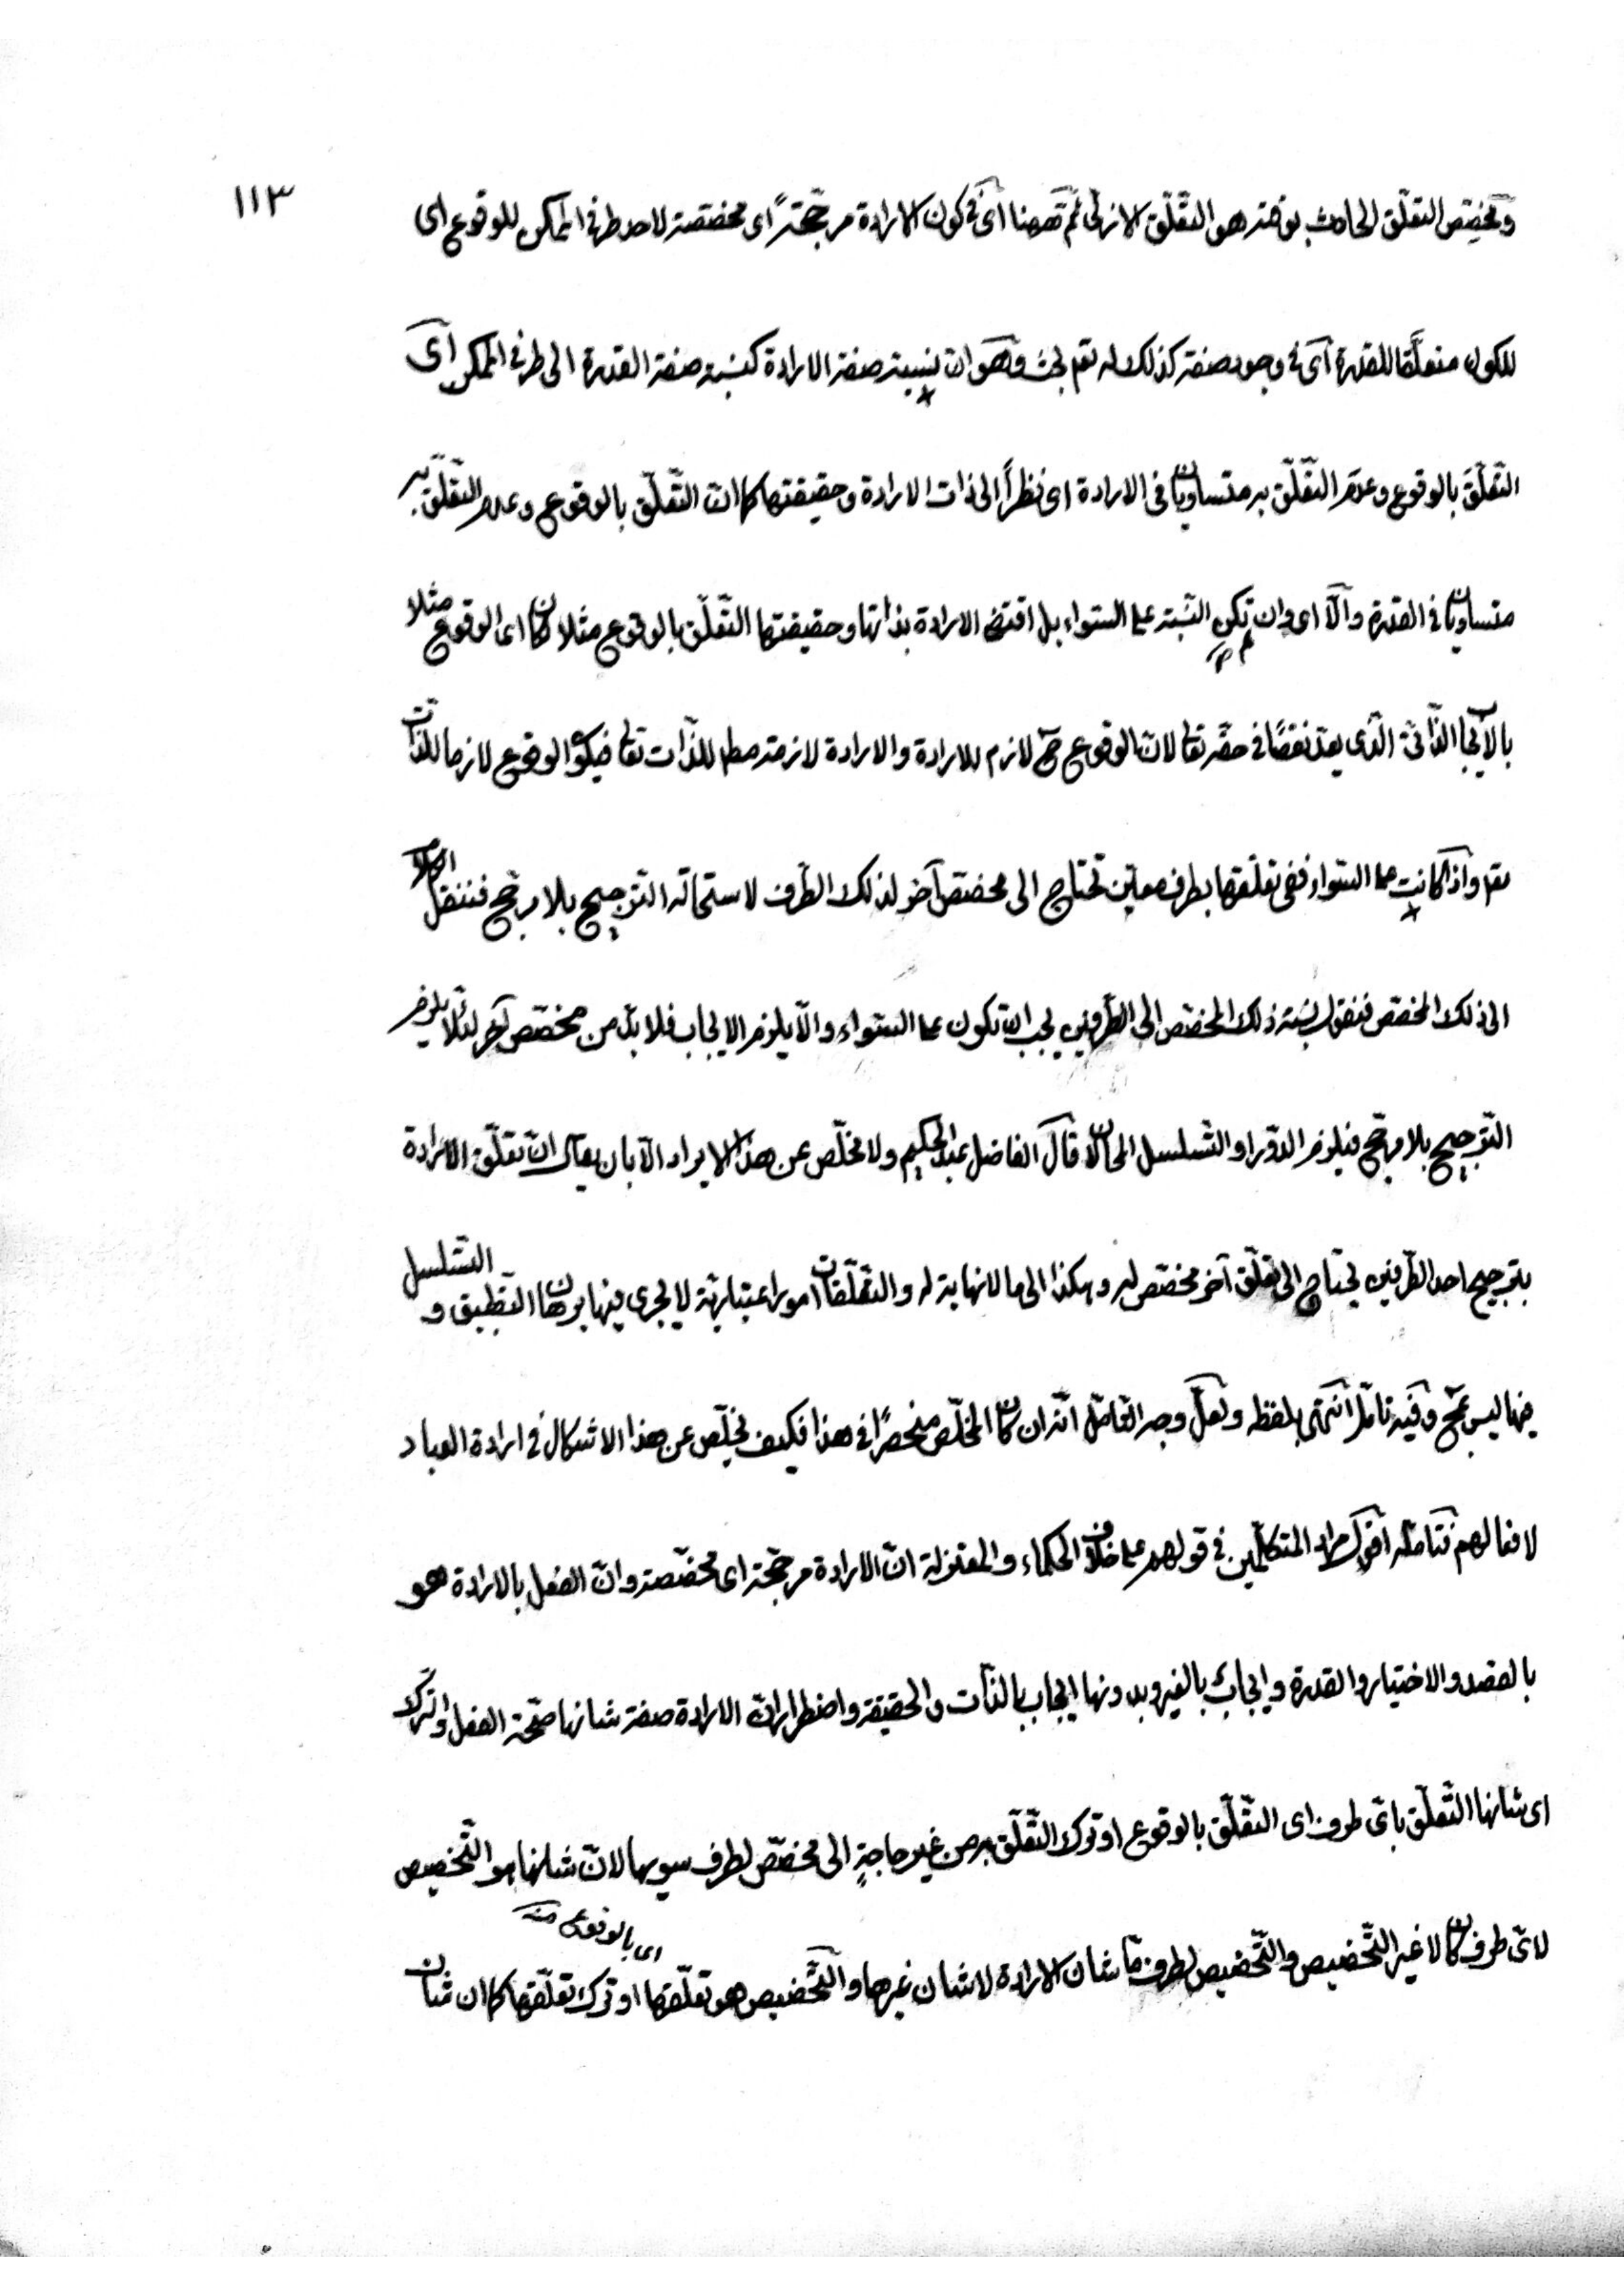 ١١٣
ومخصّص التعلّق الحادث بوقته هو التعلّق الازلى ثمّ ههنا اى فى كون الارادة مرجّحةً اى مخصّصة لاحد طرفى الممكن للوقوع اى
للكون متعلّقا للقدرة اى فى وجود صفة كذلك له تعم بحث وهو ان نسبة صفة الارادة كنسبة صفة القدرة الى طرفى الممكن اى
التعلّق بالوقوع وعدم التعلّق به متساويان فى الارادة اى نظراً الى ذات الارادة وحقيقتها كما انّ التعلّق بالوقوع وعدم التعلّق به
متساويان فى القدرة والّا اى وان لم تكن النسبة على السواء بل اقتضى الارادة بذاتها وحقيقتها التعلّق بالوقوع مثلا كان اى الوقوع مثلا
بالايجاب الذّاتىّ الّذى يعدّ نقصًا فى حقّه تعا لانّ الوقوع ح لازم للارادة والارادة لازمة مط للذّات تعا فيكون الوقوع لازما للذّات
تعم واذا كانت على السواء ففى تعلّقها بطرف معيّن تحتاج الى مخصّص آخر لذلك الطّرف لاستحالة التّرجيح بلا مرجّح فننقل الكلام
الى ذلك المخصّص فنقول نسبة ذلك المخصّص الى الطّرفين يجب ان تكون على السواء والّا يلزم الايجاب فلا بدّ من مخصّص آخر لئلّا يلزم
التّرجيح بلا مرجّح فيلزم الدّور او التّسلسل المحالان قال الفاضل عبد الحكيم ولا مخلّص عن هذا الايراد الّا بان يقال انّ تعلّق الارادة
بترجيح احد الطّرفين يحتاج الى تعلّق آخر مخصّص له وهكذا الى ما لا نهاية له والتّعلّقات امور اعتباريّة لا يجرى فيها برهان التّطبيق و التّسلسل
فيها ليس بمح وفيه تامّل انتهى بلفظه ولعلّ وجه التّامّل انّه ان كان المخلّص منحصرًا فى هذا فكيف يخلّص عن هذا الاشكال فى ارادة العباد
لافعالهم فتامّله اقول مراد المتكلّمين فى قولهم على خلاف الحكماء والمعتزلة انّ الارادة مرجّحة اى مخصّصة وانّ الفعل بالارادة هو
بالقصد والاختيار والقدرة وايجاب بالغير وبدونها ايجاب بالذّات والحقيقة واضطرار انّ الارادة صفة شانها صحّة الفعل او ترك
اى شانها التّعلّق باىّ طرف اى التّعلّق بالوقوع او ترك التّعلّق به من غير حاجةٍ الى مخصّص لطرف سويها لانّ شانها هو التّخصيص
لاىّ طرف كان لا غير التّخصيص والتّخصيص لطرف مّا شان الارادة لا شان غيرها والتّخصيص هو تعلّقها او ترك تعلّقها كما ان شان
اى بالوقوع منه